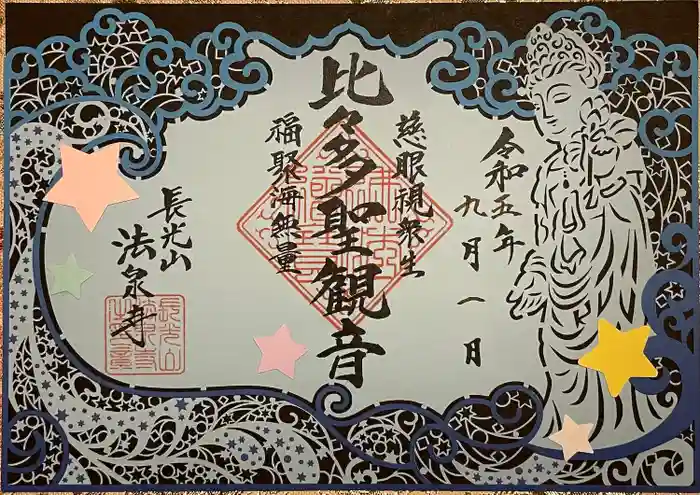 令和五年
九月一日
慈眼視衆生
比多聖観音
福聚海無量
長光山
法泉寺